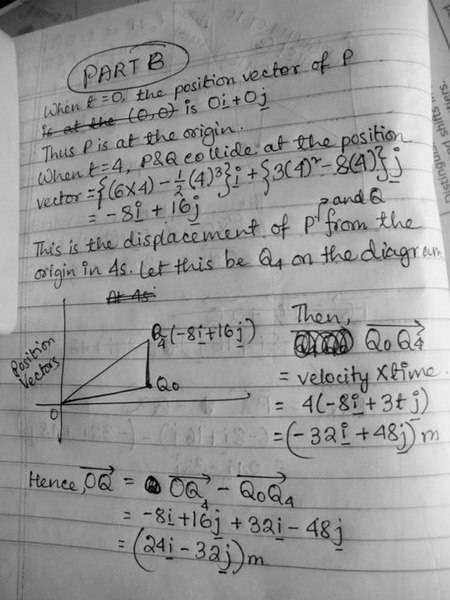 PART B
When t=0, the position vector of P
is at the (0,0) is 0i+0j
Thus P is at the origin.
When t=4, P&Q collide at the position
vector = {(6×4) - 1/2(4)³}i + {3(4)² - 8(4)}j
= -8i + 16j
This is the displacement of P and Q from the
origin in 4s. Let this be Q₄ on the diagram
At 4s
Position
Vectors
Q₄(-8i+16j)
Q₀
O
Then,
Q₀Q₄
= velocity × time.
= 4(-8i + 3tj)
= (-32i + 48j)m
Hence, OQ = OQ₄ - Q₀Q₄
= -8i+16j + 32i - 48j
= (24i - 32j)m
Distingu
shifts